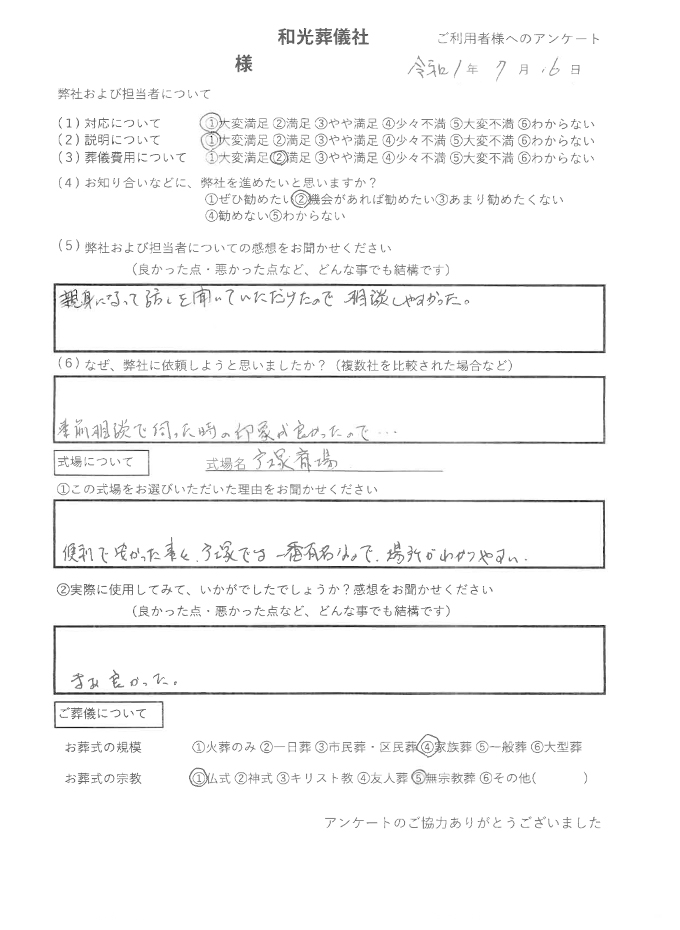 和光葬儀社 ご利用者様へのアンケート
様 令和1年 7月16日
弊社および担当者について
(1) 対応について ①大変満足 ②満足 ③やや満足 ④少々不満 ⑤大変不満 ⑥わからない
(2) 説明について ①大変満足 ②満足 ③やや満足 ④少々不満 ⑤大変不満 ⑥わからない
(3) 葬儀費用について ①大変満足 ②満足 ③やや満足 ④少々不満 ⑤大変不満 ⑥わからない
(4) お知り合いなどに、弊社を進めたいと思いますか?
①ぜひ勧めたい②機会があれば勧めたい③あまり勧めたくない
④勧めない⑤わからない
(5) 弊社および担当者についての感想をお聞かせください
(良かった点・悪かった点など、どんな事でも結構です)
親身になって話しを聞いていただけたので 相談しやすかった。
(6) なぜ、弊社に依頼しようと思いましたか?(複数社を比較された場合など)
事前相談で伺った時の印象が良かったので…
式場について 式場名 戸塚斎場
①この式場をお選びいただいた理由をお聞かせください
便利で安かった事と、戸塚では一番有名なので、場所がわかりやすい.
②実際に使用してみて、いかがでしたでしょうか?感想をお聞かせください
(良かった点・悪かった点など、どんな事でも結構です)
まあ良かった。
ご葬儀について
お葬式の規模 ①火葬のみ ②一日葬 ③市民葬・区民葬 ④家族葬 ⑤一般葬 ⑥大型葬
お葬式の宗教 ①仏式 ②神式 ③キリスト教 ④友人葬 ⑤無宗教葬 ⑥その他( )
アンケートのご協力ありがとうございました